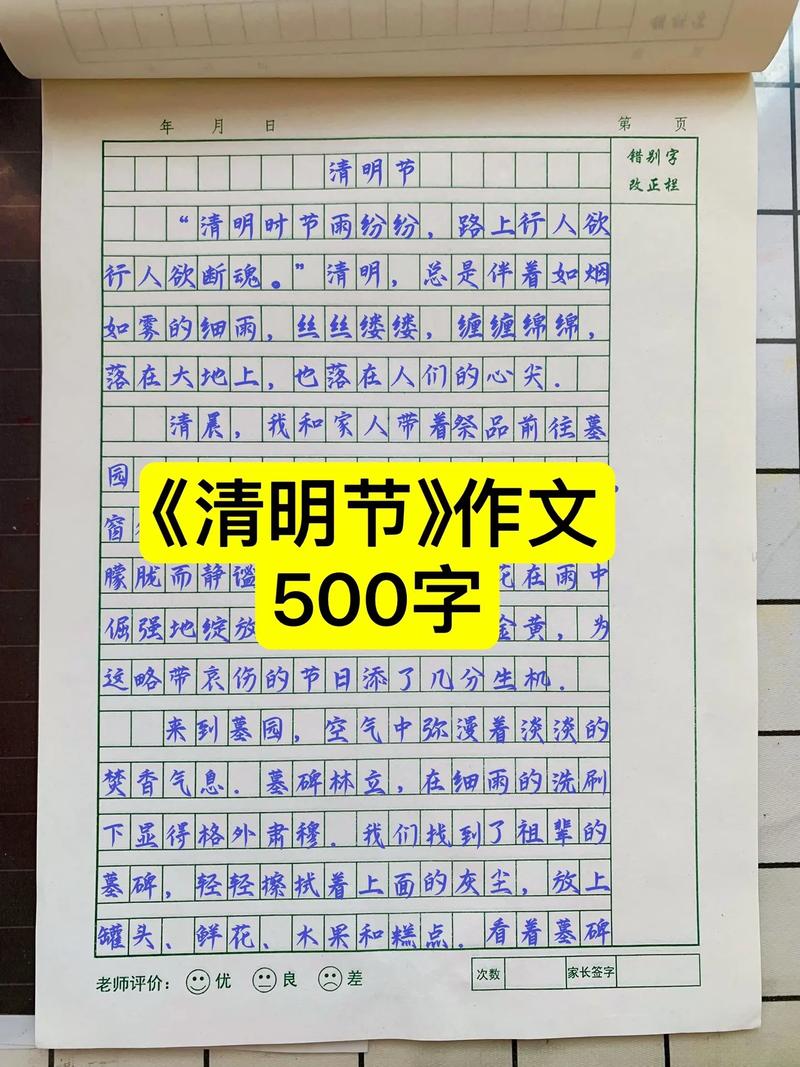 年 月 日 第 页
错别字
改正栏
清明节
“清明时节雨纷纷，路上行人欲
行人欲断魂。”清明，总是伴着如烟
如雾的细雨，丝丝缕缕，缠缠绵绵，
落在大地上，也落在人们的心尖．
清晨，我和家人带着祭品前往墓
园
窗
《清明节》作文
500字
朦胧而静谧 花在雨中
倔强地绽放 金黄，为
这略带哀伤的节日添了几分生机．
来到墓园，空气中弥漫着淡淡的
焚香气息．墓碑林立，在细雨的洗刷
下显得格外肃穆．我们找到了祖辈的
墓碑，轻轻擦拭着上面的灰尘，放上
罐头、鲜花、水果和糕点．看着墓碑
老师评价： 优 良 差 次数 家长签字